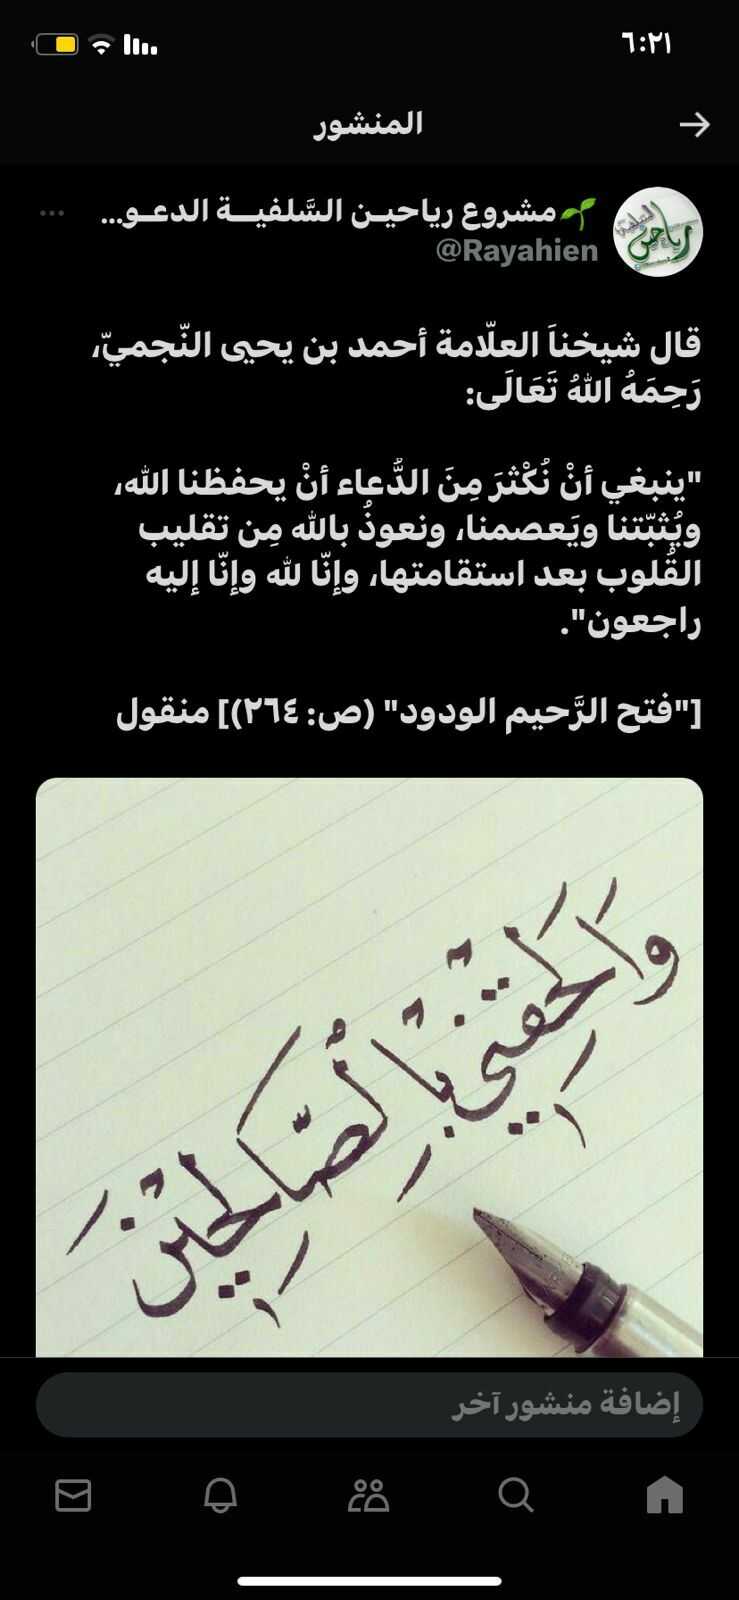 ٦:٢١
المنشور
🌱مشروع رياحيـن السَّلفيـــة الدعـو...
@Rayahien
قال شيخناَ العلّامة أحمد بن يحيى النّجميّ،
رَحِمَهُ اللهُ تَعَالَى:
"ينبغي أنْ نُكْثرَ مِنَ الدُّعاء أنْ يحفظنا الله،
ويُثبّتنا ويَعصمنا، ونعوذُ بالله مِن تقليب
القُلوب بعد استقامتها، وإنّا لله وإنّا إليه
راجعون".
["فتح الرَّحيم الودود" (ص: ٢٦٤)] منقول
وَأَلْحِقْنِي بِالصَّالِحِيْنَ
إضافة منشور آخر